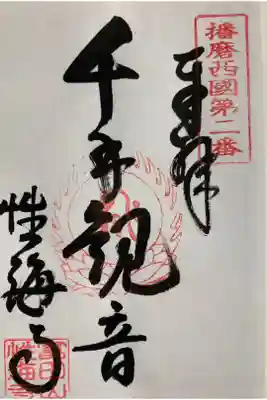 播磨西國第二番
奉拝
千手観音
性海寺